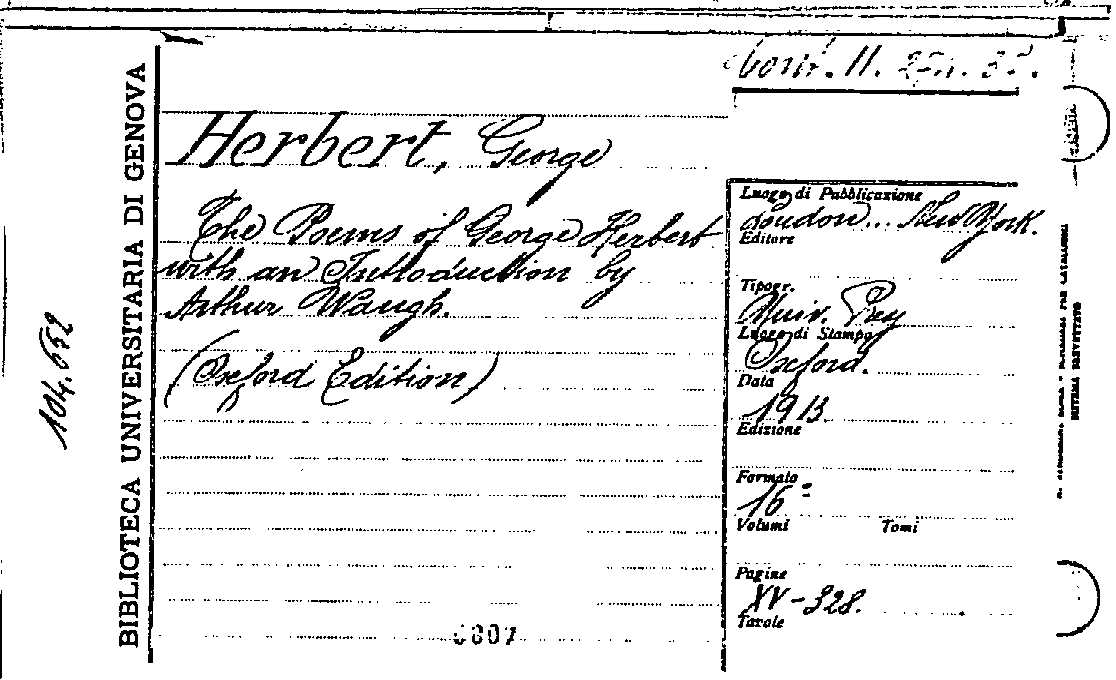 BIBLIOTECA UNIVERSITARIA DI GENOVA
104.652
Herbert, George
The Poems of George Herbert
with an Introduction by
Arthur Waugh.
(Oxford Edition)
0807
Luogo di Pubblicazione
London... New York.
Editore
Tipogr.
Univ. Press
Luogo di Stampa
Oxford.
Data
1913
Edizione
Formato
16°
Volumi Tomi
Pagine
XV-328.
Tavole
SISTEMA BREVETTATO